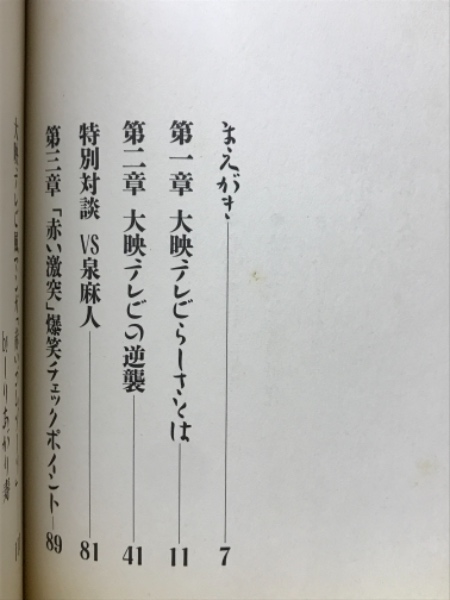 まえがき―7
第一章 大映テレビらしさとは―11
第二章 大映テレビの逆襲―41
特別対談 VS泉麻人―81
第三章 「赤い激突」爆笑チェックポイント―89